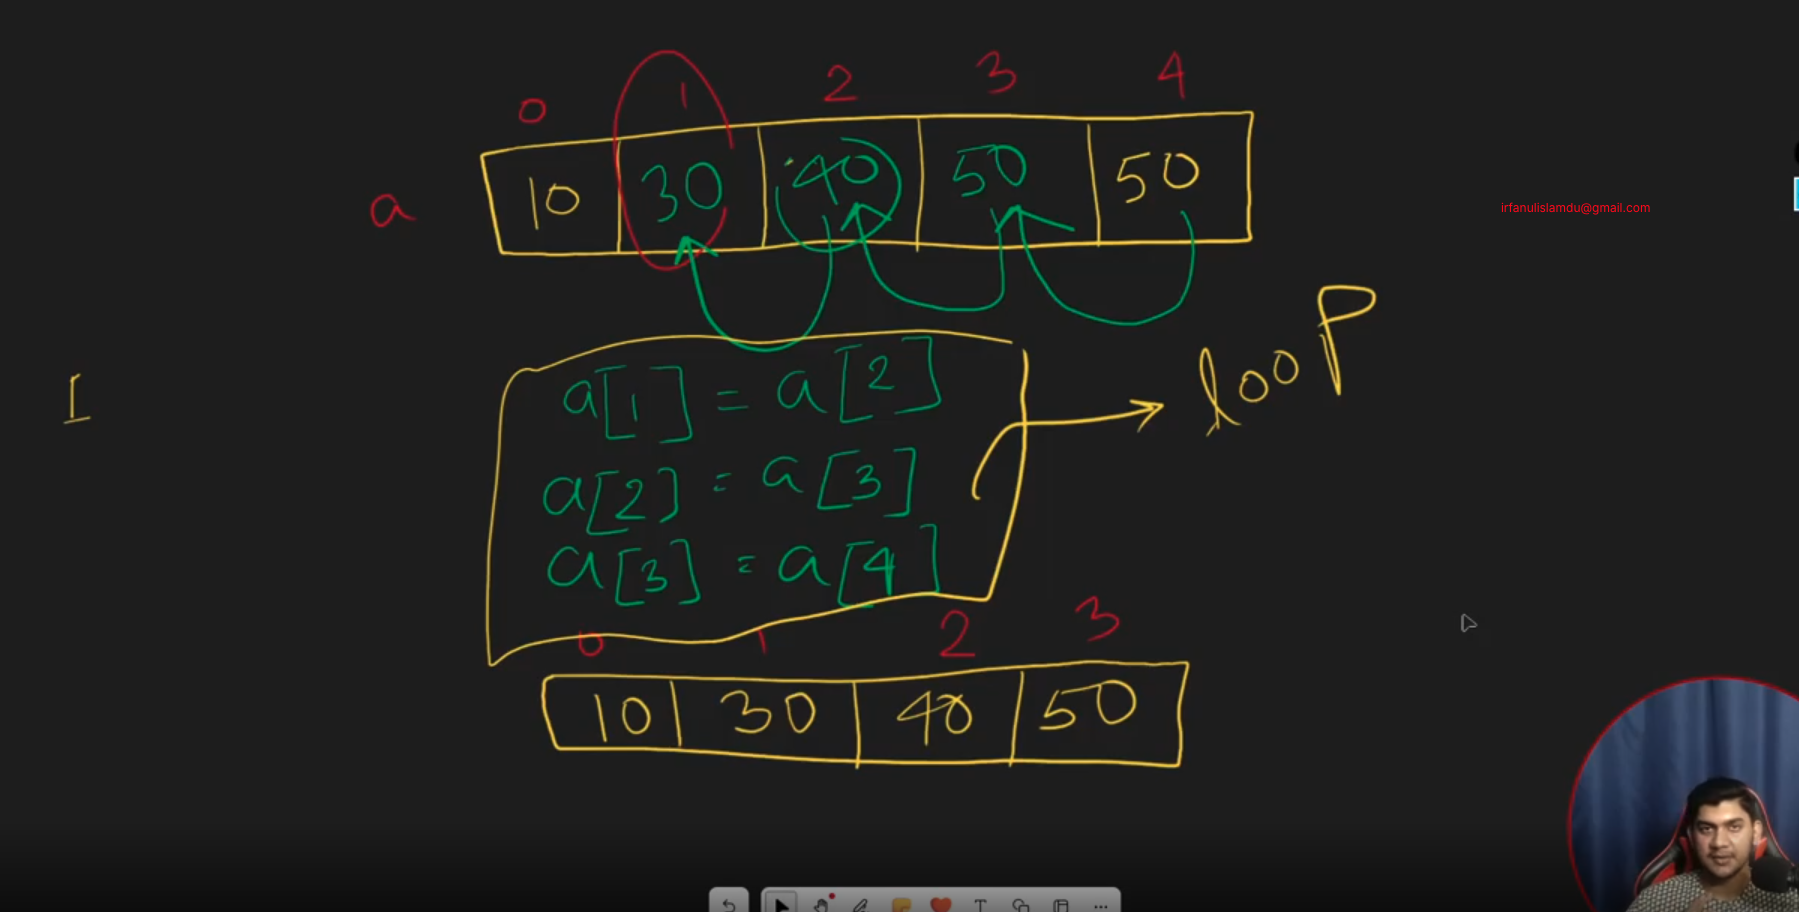 0 1 2 3 4
a 10 30 40 50 50
irfanulislamdu@gmail.com
loop
I
a[1] = a[2]
a[2] = a[3]
a[3] = a[4]
0 1 2 3
10 30 40 50